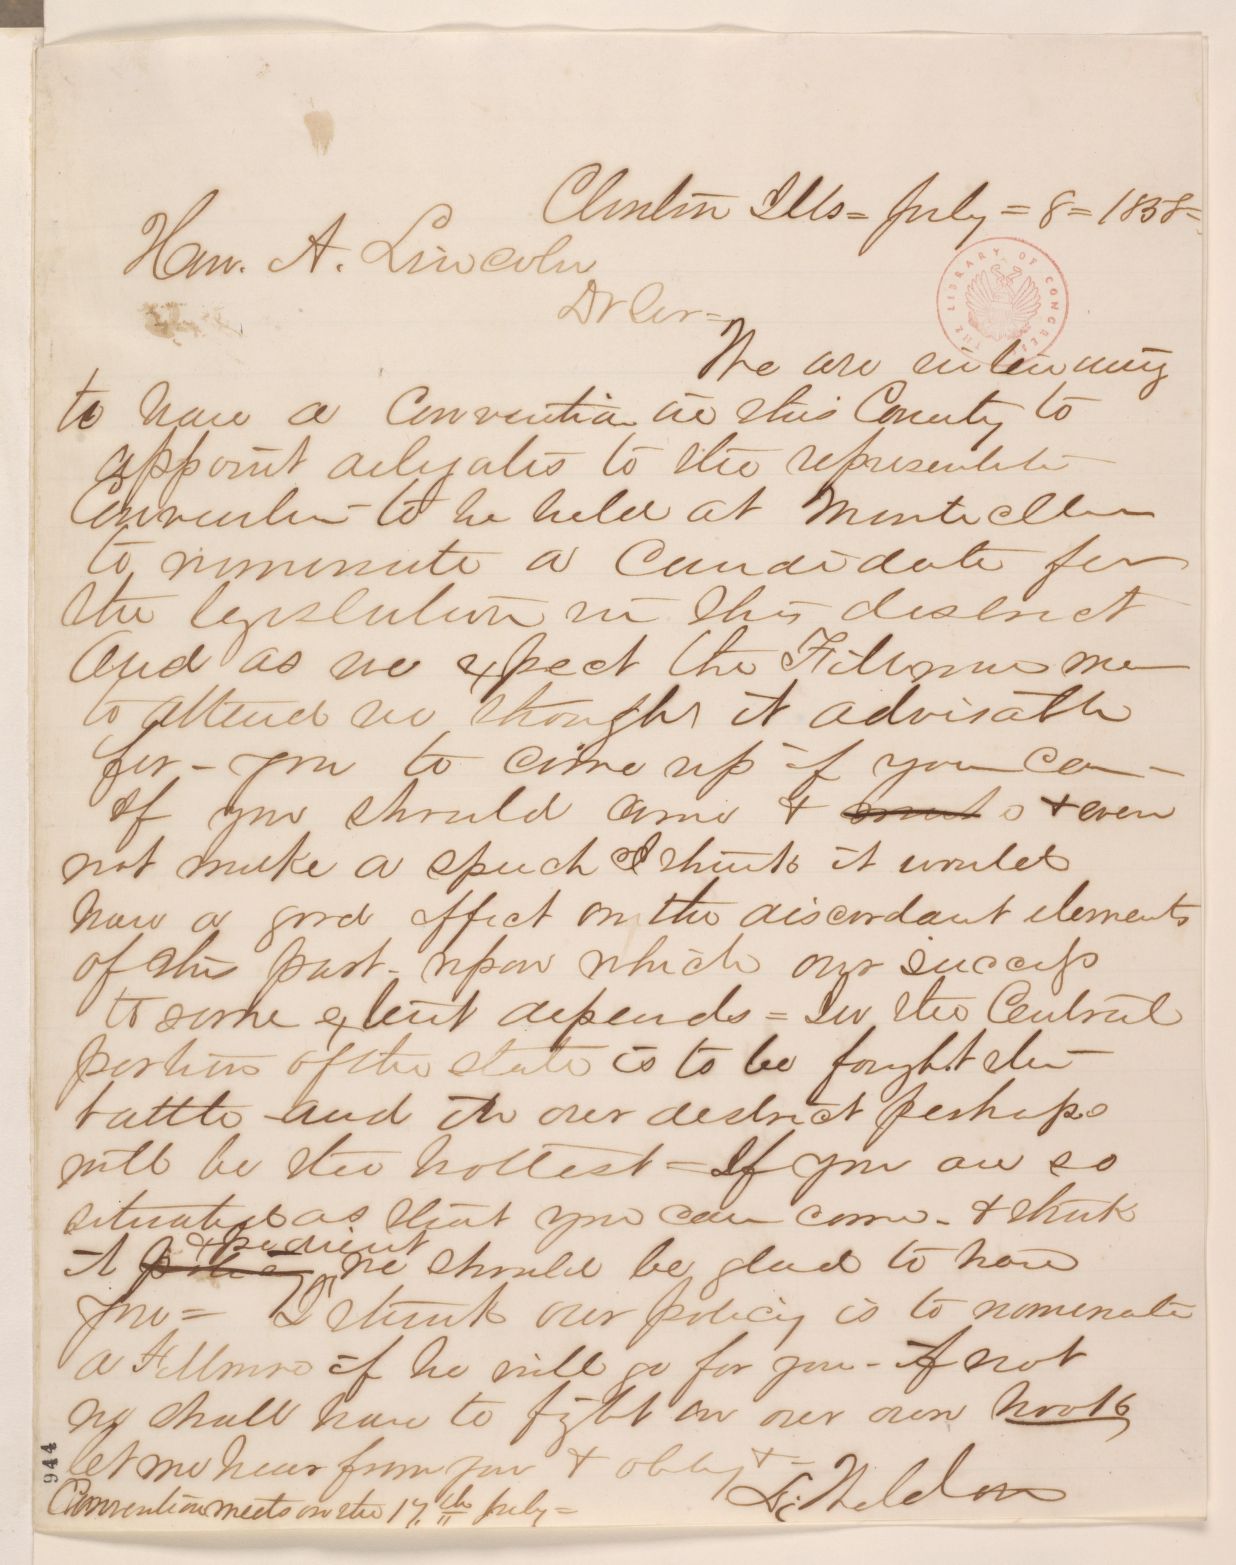 Clinton Ills = July = 8 = 1858 =
Hon. A. Lincoln
Dr Sir =
THE LIBRARY OF CONGRESS
We are intending
to have a Convention in this County to
appoint delegates to the representative
Convention to be held at Monticello
to nominate a Candidate for
the legislature in this district
And as we expect the Fillmore men
to attend we thought it advisable
for - you to come up if you can -
If you should come & & even
not make a speech I think it would
have a good effect on the discordant elements
of this part - upon which our success
to some extent depends = In the Central
portion of the state is to be fought this
battle - and in our district perhaps
will be the hottest = If you are so
situated as that you can come - & think
it expedient we should be glad to have
you = I think our policy is to nominate
a Fillmore if he will go for you - if not
we shall have to fight on our own hook
let me hear from you & oblige
L. Weldon
Convention meets on the 17th July =
944